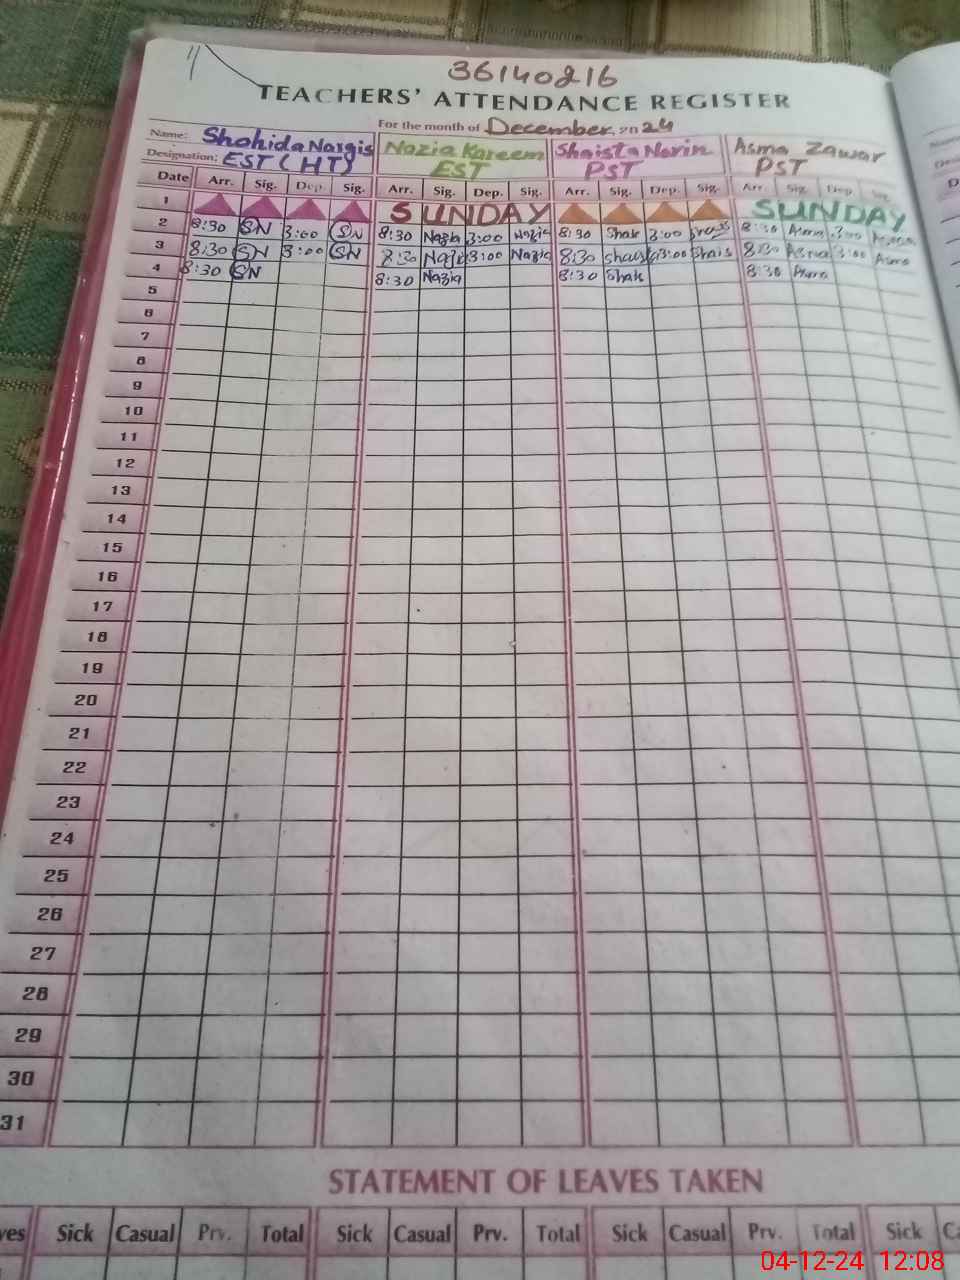 36140216
TEACHERS' ATTENDANCE REGISTER
For the month of December, 2024
Name: Shahida Nargis Nazia Kareem Shaista Narin Asma Zawar
Designation: EST (HT) EST PST PST
Date Arr. Sig. Dep. Sig. Arr. Sig. Dep. Sig. Arr. Sig. Dep. Sig. Arr. Sig. Dep. Sig.
1 SUNDAY SUNDAY
2 8:30 SN 3:00 SN 8:30 Nazia 3:00 Nazia 8:30 Shais 3:00 Shais 8:30 Asma 3:00 Asma
3 8:30 SN 3:00 SN 8:30 Nazia 3:00 Nazia 8:30 Shais 3:00 Shais 8:30 Asma 3:00 Asma
4 8:30 SN 8:30 Nazia 8:30 Shais 8:30 Asma
5
6
7
8
9
10
11
12
13
14
15
16
17
18
19
20
21
22
23
24
25
26
27
28
29
30
31
STATEMENT OF LEAVES TAKEN
Sick Casual Prv. Total Sick Casual Prv. Total Sick Casual Prv. Total Sick
04-12-24 12:08